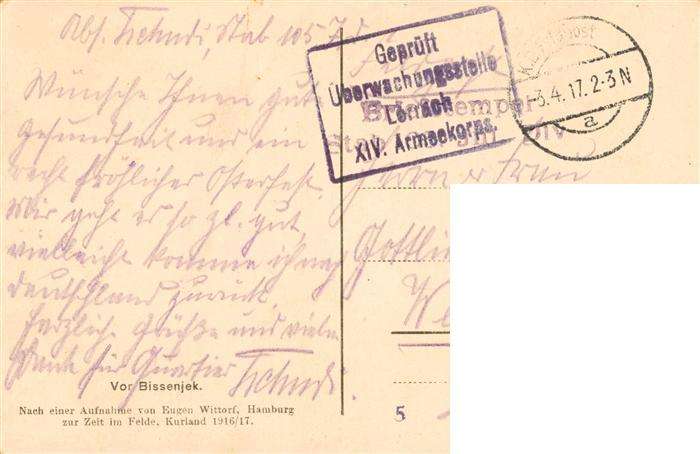 Abs. Tschudi, Stab 105 J. D.
Wünsche Ihnen gute
Gesundheit und ein
recht fröhliches Osterfest.
Mir geht es so zl. gut,
vielleicht komme ich nach
Deutschland zurück.
Herzliche Grüße und vielen
Dank für Quartier Tschudi.
Vor Bissenjek.
Nach einer Aufnahme von Eugen Wittorf, Hamburg
zur Zeit im Felde. Kurland 1916/17.
Geprüft
Überwachungsstelle
Lörrach
XIV. Armeekorps.
3.4.17.2-3N
a
Briefstempel
Stab
Div
Herrn u Frau
Gottlie
We
5